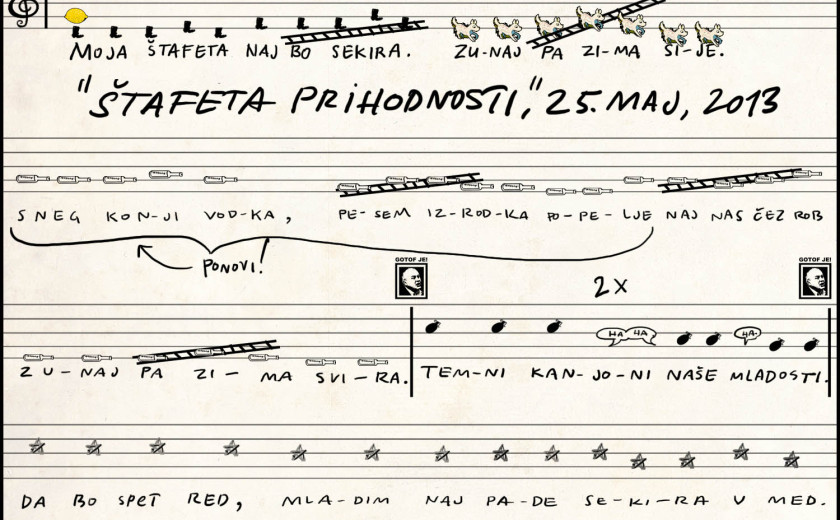 MOJA ŠTAFETA NAJ BO SEKIRA. ZU-NAJ PA ZI-MA SI-JE.
"ŠTAFETA PRIHODNOSTI," 25. MAJ, 2013
SNEG KON-JI VOD-KA, PE-SEM IZ-ROD-KA PO-PE-LJE NAJ NAS ČEZ ROB
PONOVI!
GOTOF JE!
2x
GOTOF JE!
HA HA
HA.
ZU-NAJ PA ZI-MA SVI-RA. TEM-NI KAN-JO-NI NAŠE MLADOSTI.
DA BO SPET RED, MLA-DIM NAJ PA-DE SE-KI-RA V MED.